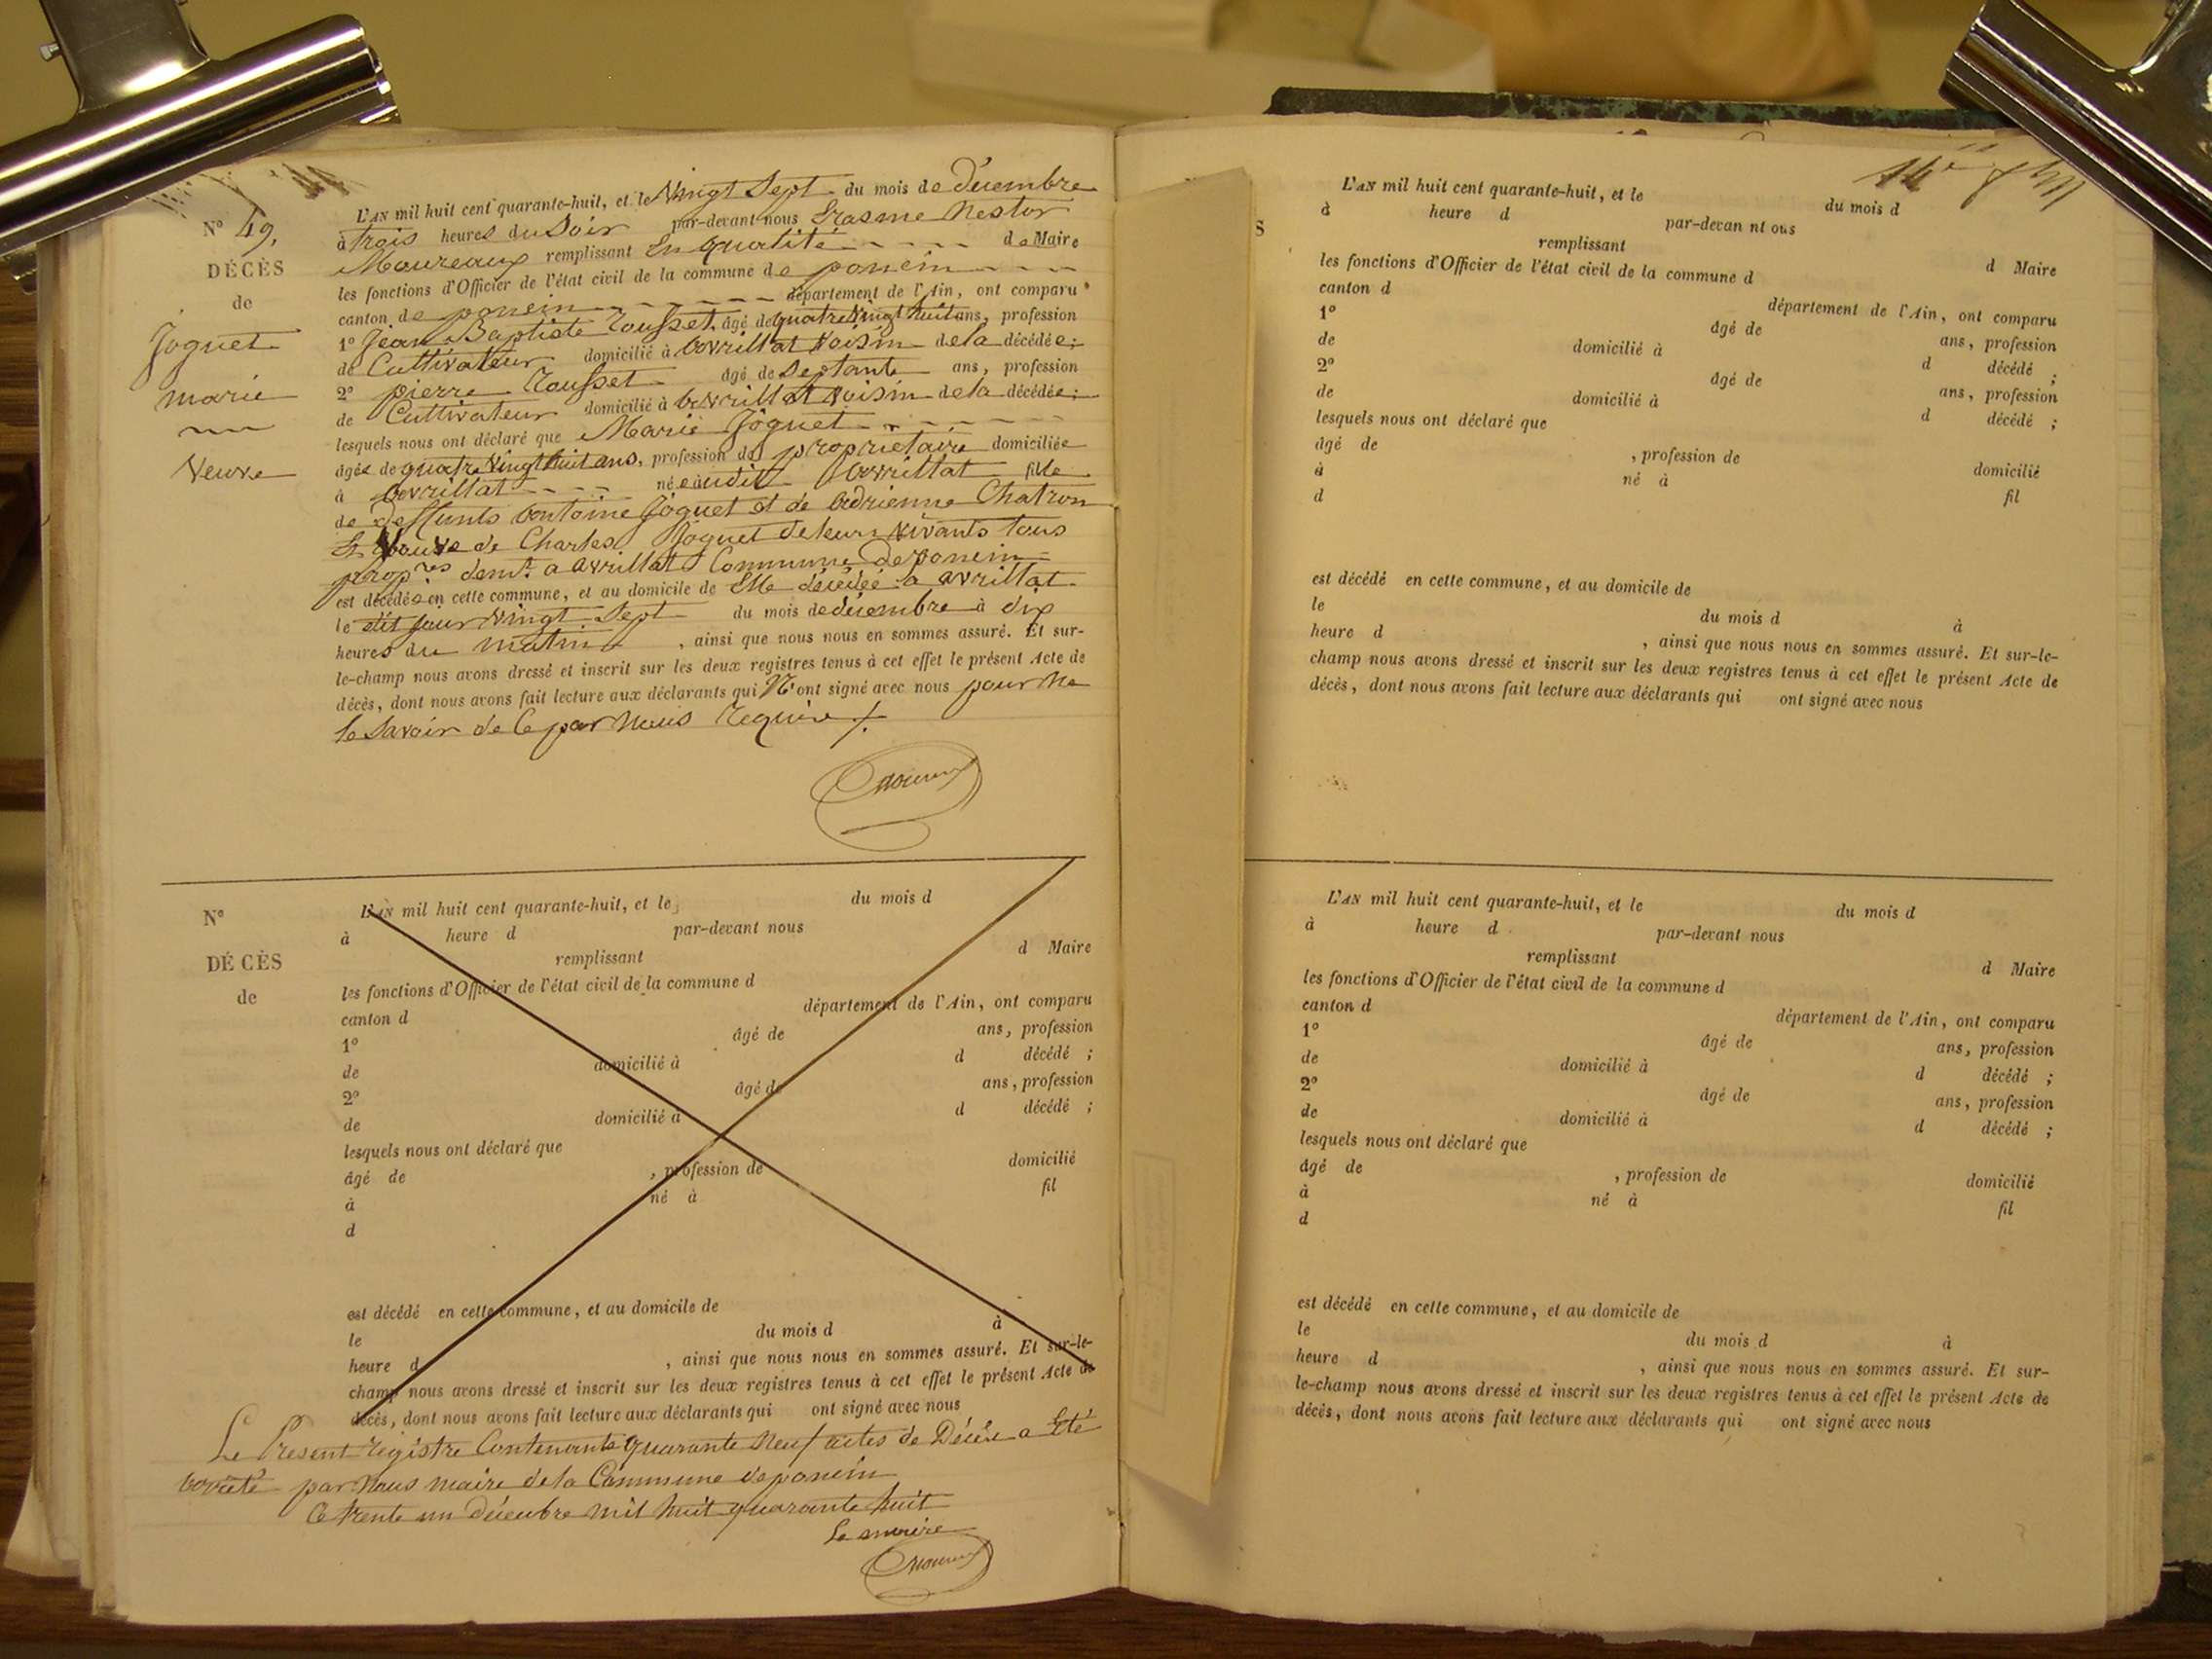 L'AN mil huit cent quarante-huit, et le Vingt Sept du mois de Décembre
à trois heures du Soir par-devant nous Erasme Nestor
Moureaux remplissant En qualité - - - - de Maire
les fonctions d'Officier de l'état civil de la commune de poncin - - -
canton de poncin - - - - - - - département de l'Ain, ont comparu
1° Jean Baptiste Rousset, âgé de quatre Vingt huit ans, profession
de Cultivateur domicilié à avrillat Voisin de la décédée;
2° pierre Rousset âgé de Septante ans, profession
de Cultivateur domicilié à avrillat Voisin de la décédée;
lesquels nous ont déclaré que Marie Joguet - - - - -
âgée de quatre Vingt huit ans, profession de propriétaire domiciliée
à avrillat - - - - née audit avrillat fille
de deffunts antoine Joguet et de adrienne Chatron
Et Veuve de Charles Joguet de leurs vivants tous
prop.res demt. a avrillat Commune de poncin
est décédée en cette commune, et au domicile de Elle décédée a avrillat
le dit jour Vingt Sept du mois de décembre à dix
heures du matin , ainsi que nous nous en sommes assuré. Et sur-
le-champ nous avons dressé et inscrit sur les deux registres tenus à cet effet le présent Acte de
décès, dont nous avons fait lecture aux déclarants qui N'ont signé avec nous pour ne
le Savoir de Ce par Nous Requis
N° 49.
DÉCÈS
de
Joguet
marie
Veuve
N°
DÉCÈS
de
L'AN mil huit cent quarante-huit, et le du mois d
à heure d par-devant nous
remplissant d Maire
les fonctions d'Officier de l'état civil de la commune d
canton d département de l'Ain, ont comparu
1° âgé de ans, profession
de domicilié à d décédé ;
2° âgé de ans, profession
de domicilié à d décédé ;
lesquels nous ont déclaré que
âgé de , profession de domicilié
à né à fil
d
est décédé en cette commune, et au domicile de
le du mois d à
heure d , ainsi que nous nous en sommes assuré. Et sur-le-
champ nous avons dressé et inscrit sur les deux registres tenus à cet effet le présent Acte de
décès, dont nous avons fait lecture aux déclarants qui ont signé avec nous
Le Présent Régistre Contenant quarante Neuf actes de Décès a Eté
avrêté par Nous maire de la Commune de poncin
Ce trente un Décembre mil huit quarante huit
Le maire
S
L'AN mil huit cent quarante-huit, et le du mois d
à heure d par-devan nt ous
remplissant d Maire
les fonctions d'Officier de l'état civil de la commune d
canton d département de l'Ain, ont comparu
1° âgé de ans, profession
de domicilié à d décédé ;
2° âgé de ans, profession
de domicilié à d décédé ;
lesquels nous ont déclaré que
âgé de , profession de domicilié
à né à fil
d
est décédé en cette commune, et au domicile de
le du mois d à
heure d , ainsi que nous nous en sommes assuré. Et sur-le-
champ nous avons dressé et inscrit sur les deux registres tenus à cet effet le présent Acte de
décès, dont nous avons fait lecture aux déclarants qui ont signé avec nous
L'AN mil huit cent quarante-huit, et le du mois d
à heure d par-devant nous
remplissant d Maire
les fonctions d'Officier de l'état civil de la commune d
canton d département de l'Ain, ont comparu
1° âgé de ans, profession
de domicilié à d décédé ;
2° âgé de ans, profession
de domicilié à d décédé ;
lesquels nous ont déclaré que
âgé de , profession de domicilié
à né à fil
d
est décédé en cette commune, et au domicile de
le du mois d à
heure d , ainsi que nous nous en sommes assuré. Et sur-
le-champ nous avons dressé et inscrit sur les deux registres tenus à cet effet le présent Acte de
décès, dont nous avons fait lecture aux déclarants qui ont signé avec nous